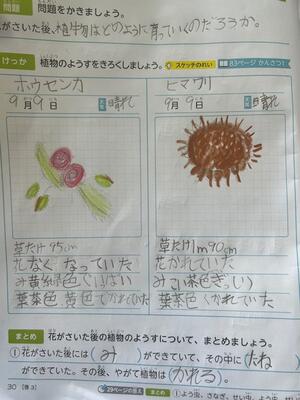 問題 問題をかきましょう。
がさいた後、植物はどのように育っていくのだろうか。
けっか 植物のようすをきろくしましょう。 スケッチのれい 83ページ かんさつ1
ホウセンカ
9月9日 天気 晴れ
ヒマワリ
9月9日 天気 晴れ
草たけ95cm
花なくなっていた
葉茶色 黄色
草たけ1m90cm
花かれていた
み こい茶色ぎっしり
葉茶色くかれていた
まとめ 花がさいた後の植物のようすについて、まとめましょう。
①花がさいた後には(み)ができていて、その中に(たね)
ができていた。その後、やがて植物は(かれる)。
30 (啓3) 29ページの答え ①よう虫、さなぎ、せい虫、よう虫、せい虫